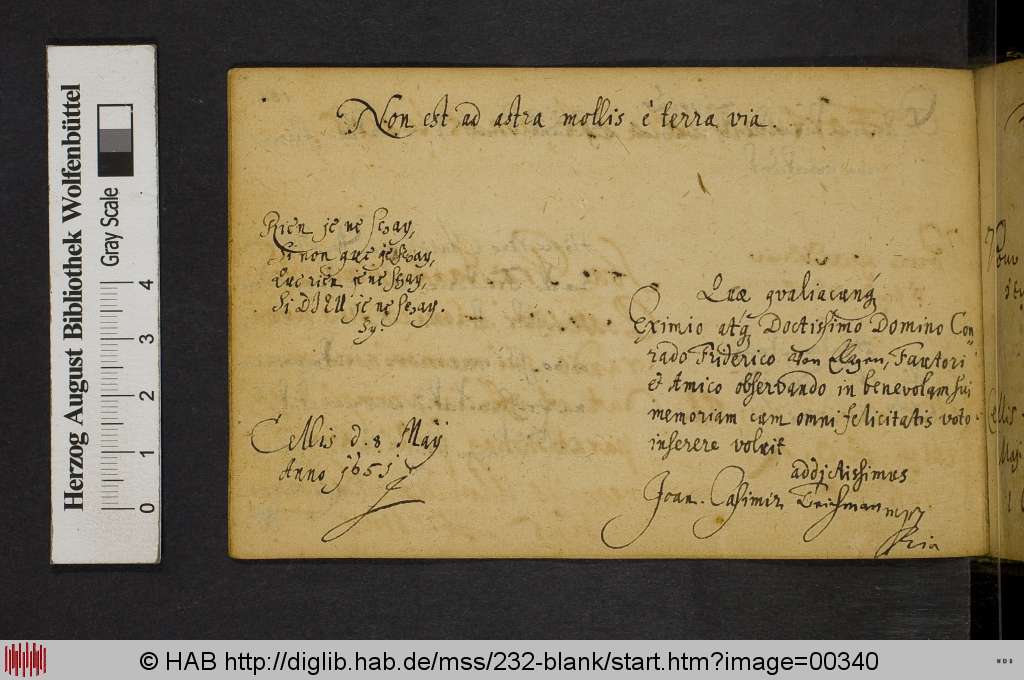 Non est ad astra mollis è terra via.
Rien je ne sçay,
Sinon que je sçay,
Que rien je ne sçay,
Si DIEU je ne sçay.
Cellis d. 8 Maÿ
Anno 1651
Quæ qvaliacunq́
Eximio atq́ Doctissimo Domino Con
rado Friderico von Hagen, Fautori
et Amico observando in benevolam sui
memoriam cum omni felicitatis voto
inserere voluit
addictissimus
Joan. Casimir mppria
Herzog August Bibliothek Wolfenbüttel
Gray Scale
0 1 2 3 4
© HAB http://diglib.hab.de/mss/232-blank/start.htm?image=00340